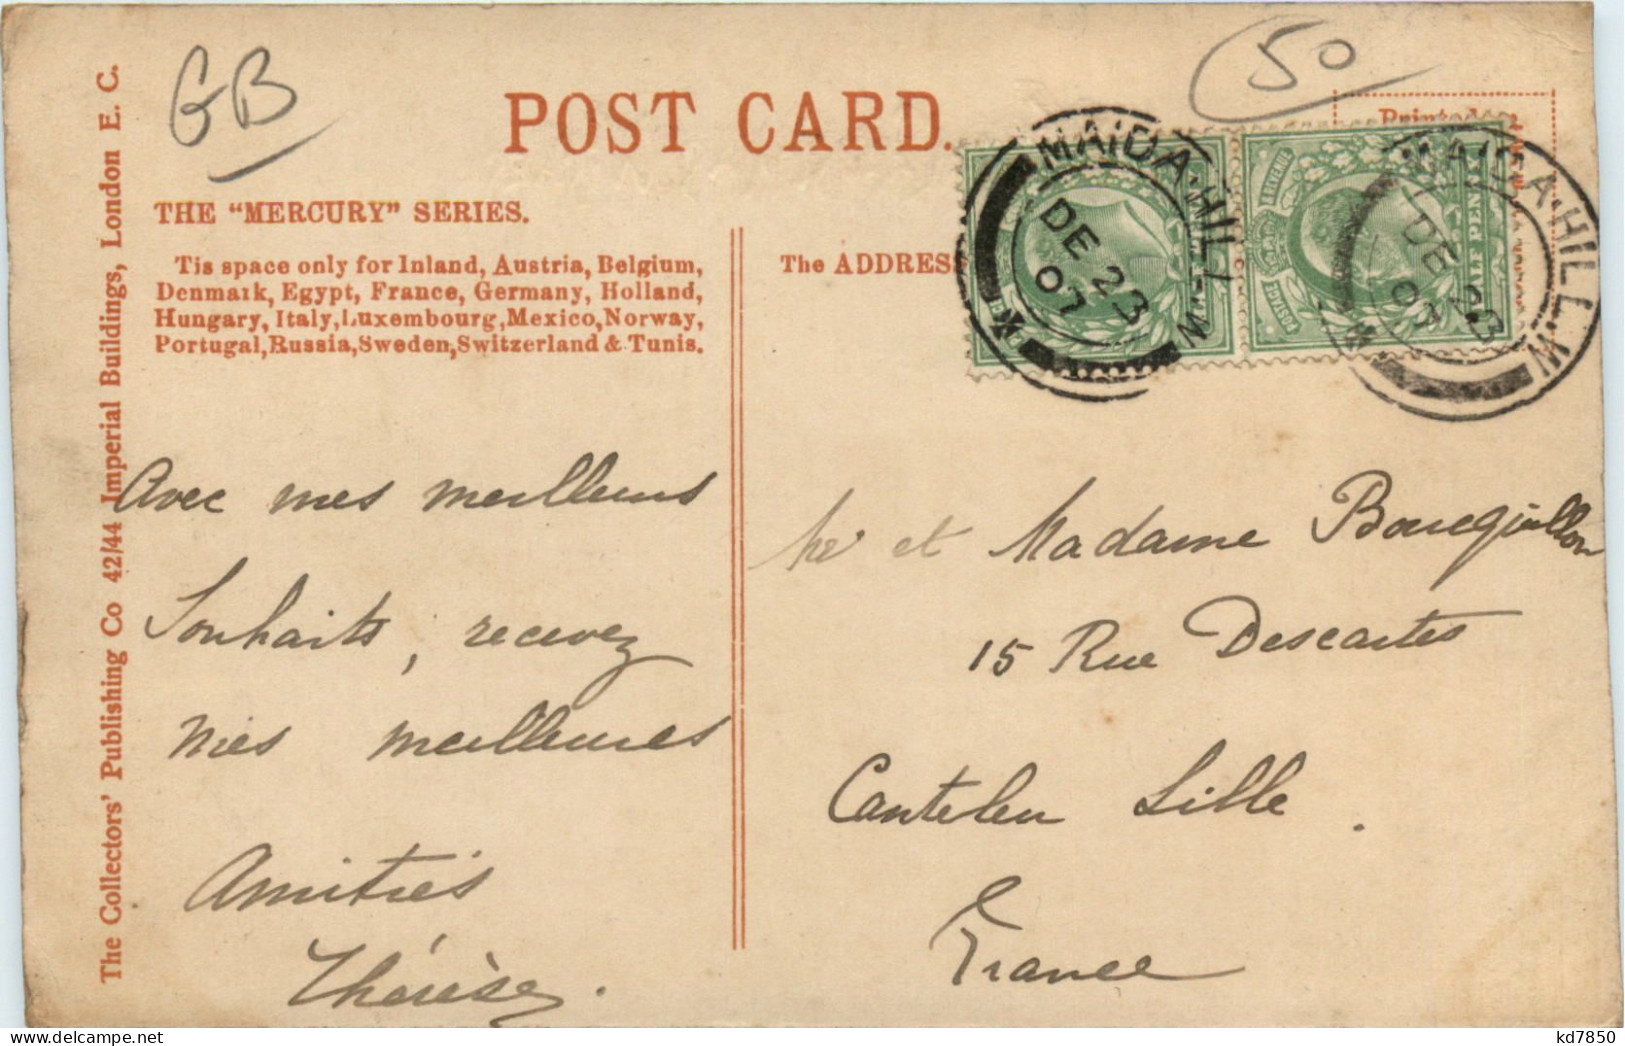 GB
50
POST CARD.
Printed
THE "MERCURY" SERIES.
Tis space only for Inland, Austria, Belgium,
Denmark, Egypt, France, Germany, Holland,
Hungary, Italy, Luxembourg, Mexico, Norway,
Portugal, Russia, Sweden, Switzerland & Tunis.
The ADDRESS
MAIDA·HILL·W
DE 23
07
MAIDA·HILL·W
DE 23
07
POSTAGE
REVENUE
HALF PENNY
The Collectors' Publishing Co 42/44 Imperial Buildings, London E. C.
Avec mes meilleurs
Souhaits, recevez
mes meilleures
Amitiés
Thérèse.
Mr et Madame Bouequillon
15 Rue Descartes
Canteleu Lille.
France
kd7850